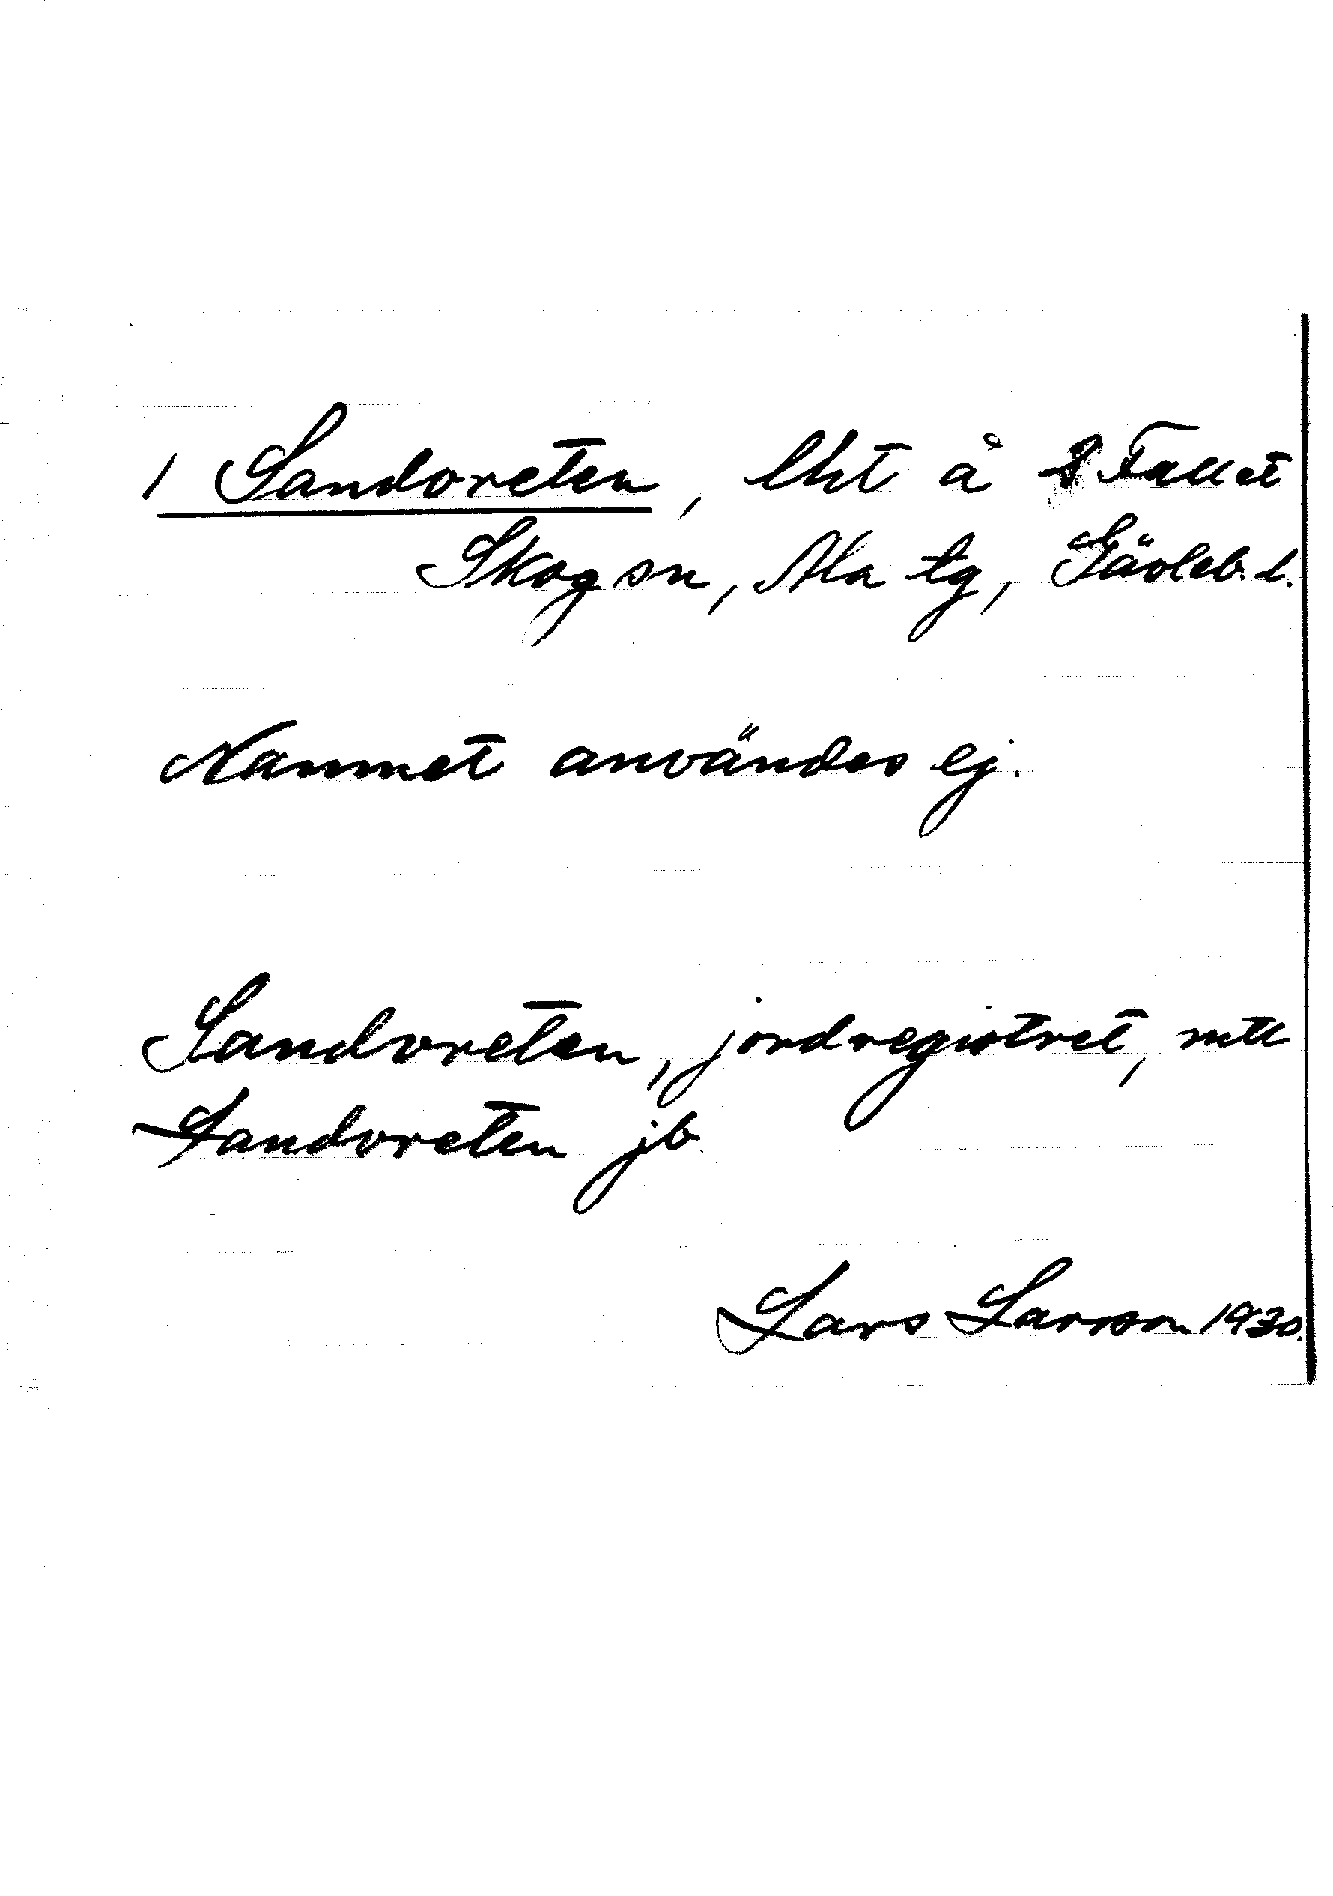 1 Sandvreten, lht å 8 Fallet
Skog sn, Ala tg, Gävleb. l.
Namnet användes ej.
Sandvreten, jordregistret, mtl
Sandvreten jb
Lars Larsson 1930.